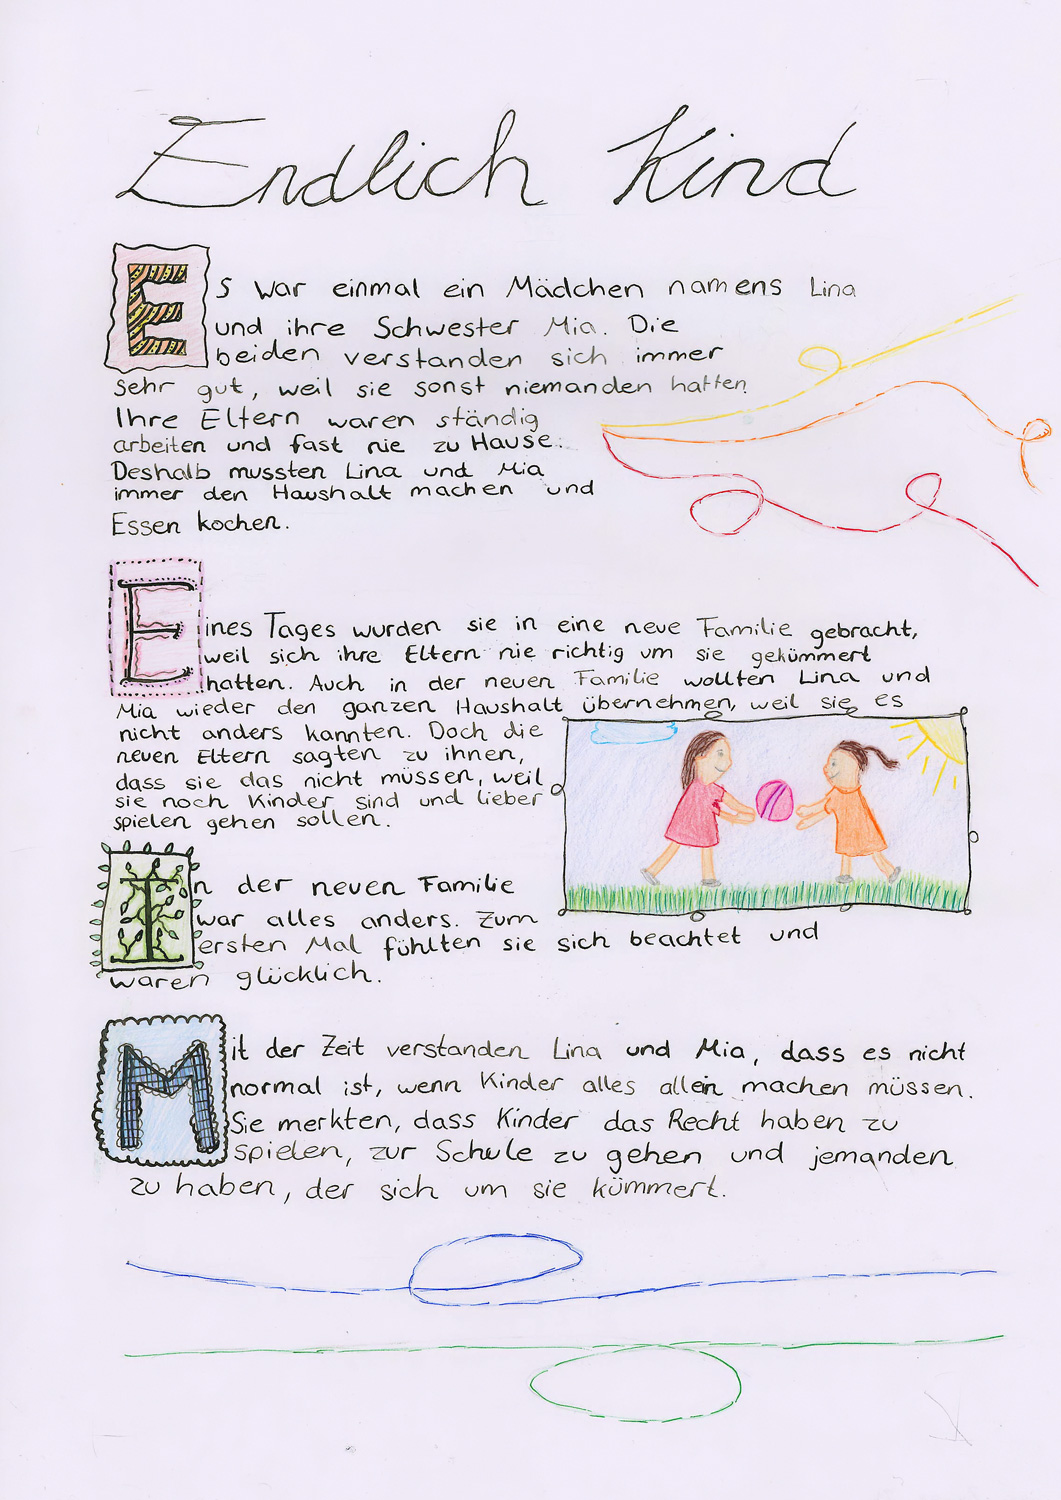 Endlich Kind
Es war einmal ein Mädchen namens Lina
und ihre Schwester Mia. Die
beiden verstanden sich immer
sehr gut, weil sie sonst niemanden hatten.
Ihre Eltern waren ständig
arbeiten und fast nie zu Hause.
Deshalb mussten Lina und Mia
immer den Haushalt machen und
Essen kochen.
Eines Tages wurden sie in eine neue Familie gebracht,
weil sich ihre Eltern nie richtig um sie gekümmert
hatten. Auch in der neuen Familie wollten Lina und
Mia wieder den ganzen Haushalt übernehmen, weil sie es
nicht anders kannten. Doch die
neuen Eltern sagten zu ihnen,
dass sie das nicht müssen, weil
sie noch Kinder sind und lieber
spielen gehen sollen.
In der neuen Familie
war alles anders. Zum
ersten Mal fühlten sie sich beachtet und
waren glücklich.
Mit der Zeit verstanden Lina und Mia, dass es nicht
normal ist, wenn Kinder alles allein machen müssen.
Sie merkten, dass Kinder das Recht haben zu
spielen, zur Schule zu gehen und jemanden
zu haben, der sich um sie kümmert.